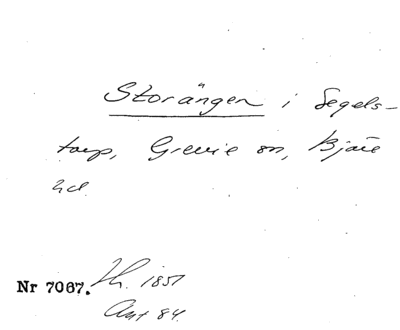 Storängen i Segels-
torp, Grevie sn, Bjäre
hd.
Nr 7067. Jh. 1851
Ant 84.